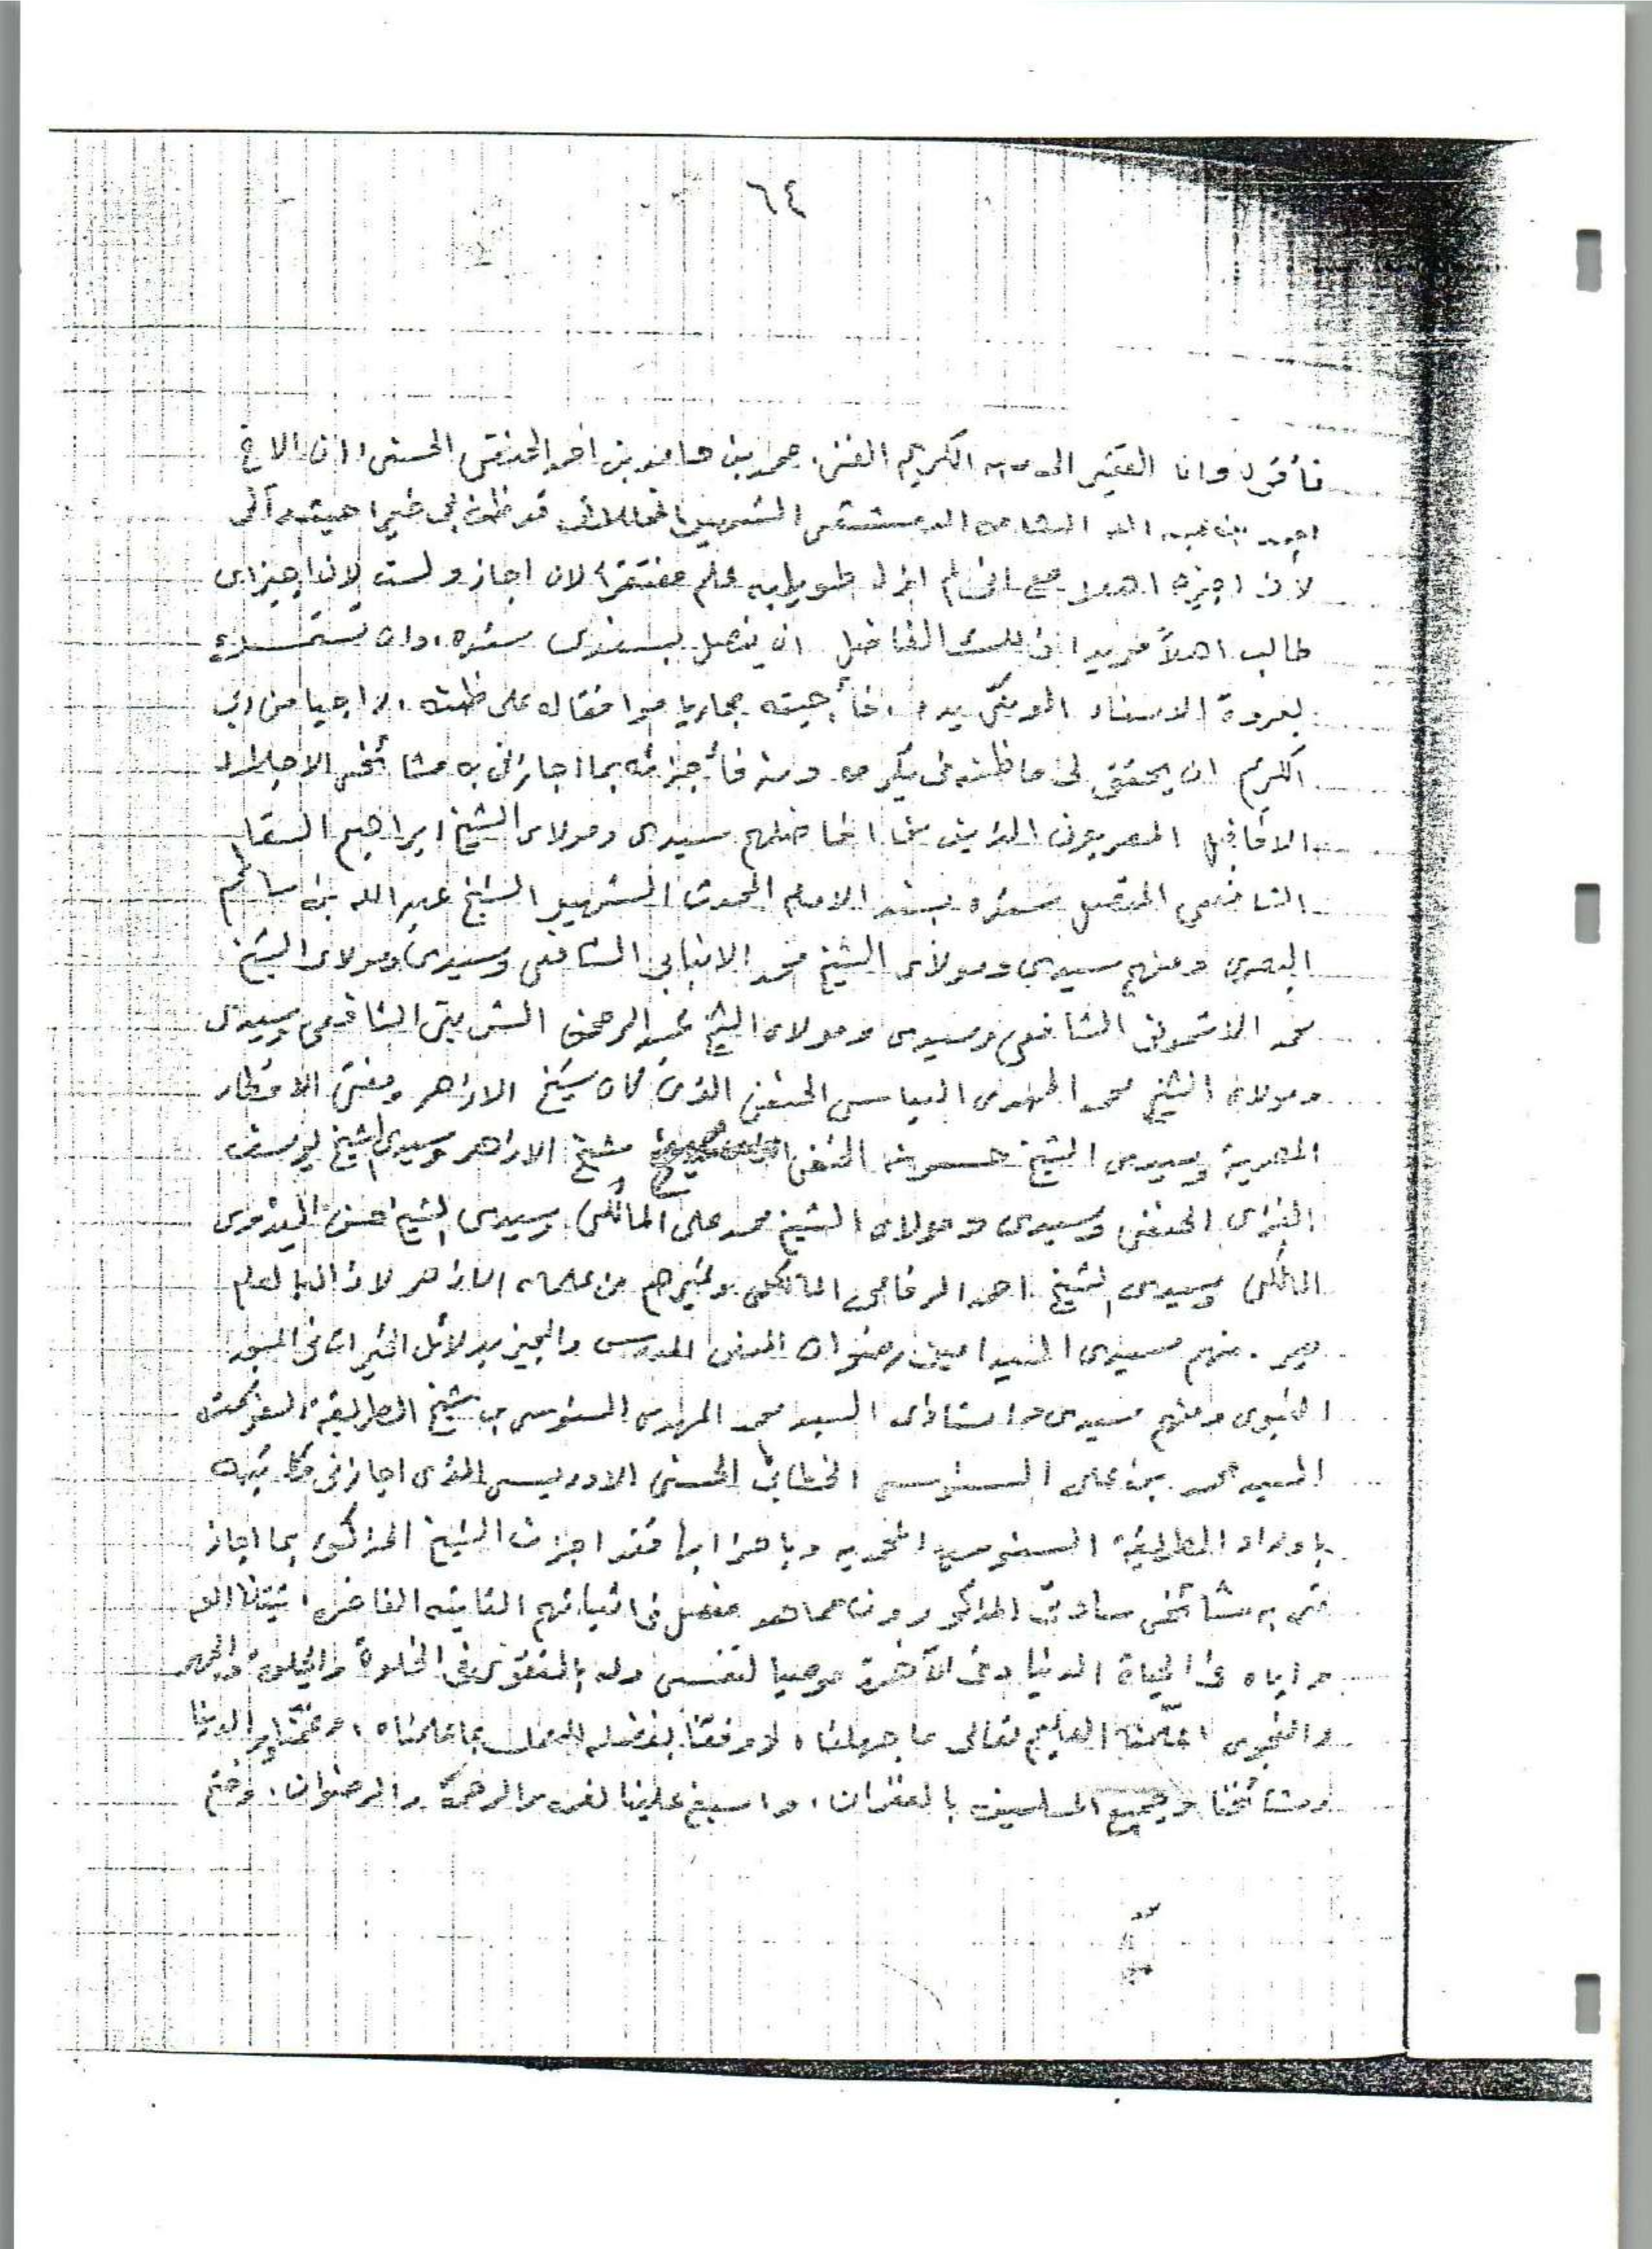 ٦٤
فأقول وانا الفقير الى ربه الكريم الغنى محمد بن حامد بن احمد الحنفى الحسنى ان الاخ
احمد بن عبد الله الشامى الدمشقى الشهير قد ظن بى خيرا حيث رآنى
لأن اجيزه اهلا مع انى لم ازل طويلبه علم مفتقرا لان اجاز ولست لان اجيز اى
طالب اهلاً مريدا ذلك الفاضل ان يتصل بسندى سنده وان يستمسك
بعروة الاسناد الموثقى يده فأجبته مجاريا موافقا له على ظنه راجيا من ربى
الكريم ان يحقق لى ما ظنه فى بكرمه ومنه فأجزته بما اجازنى به مشائخى الاجلاء
الافاضل المصريون الذين منهم سيدى ومولاى الشيخ ابراهيم السقا
الشافعى المتصل سنده بسند الامام المحدث الشهير الشيخ عبد الله بن سالم
البصرى ومنهم سيدى ومولاى الشيخ محمد الانبابى الشافعى وسيدى ومولاى الشيخ
محمد الاشمونى الشافعى وسيدى ومولاى الشيخ عبد الرحمن الشربينى الشافعى وسيدى
ومولاى الشيخ محمد المهدى العباسى الحنفى الذى كان شيخ الازهر ومفتى الاقطار
المصرية وسيدى الشيخ حسونه الحنفى شيخ الازهر وسيدى الشيخ يوسف
الحنفى وسيدى ومولاى الشيخ محمد على المالكى وسيدى الشيخ حسن
المالكى وسيدى الشيخ احمد الرفاعى المالكى وغيرهم من علماء الازهر لا زال بالعلم
ومنهم سيدى السيد امين رضوان المدنى المدرس والمجيز بدلائل الخيرات فى المسجد
النبوى ومنهم سيدى واستاذى السيد محمد المهدى السنوسى شيخ الطريقة
السيد محمد بن على السنوسى الخطابى الحسنى الادريسى الذى اجازنى مكاتبة
باوراد الطريقة السنوسية المحمديه وباحزابها فقد اجزت الشيخ المذكور بما اجاز
نى به مشائخى ساداتى المذكورون مما هو مفصل فى اثباتهم ثبتنا الله
واياه فى الحياة الدنيا وفى الآخرة موصيا لنفسى وله بالتقوى فى الخلوة والجلوة والجهر
والنجوى علمنا العليم تعالى ما جهلناه ووفقنا بفضله للعمل بما علمناه وعمنا
ومشائخنا وجميع المسلمين بالغفران، واسبغ علينا الرحمة والرضوان، وختم